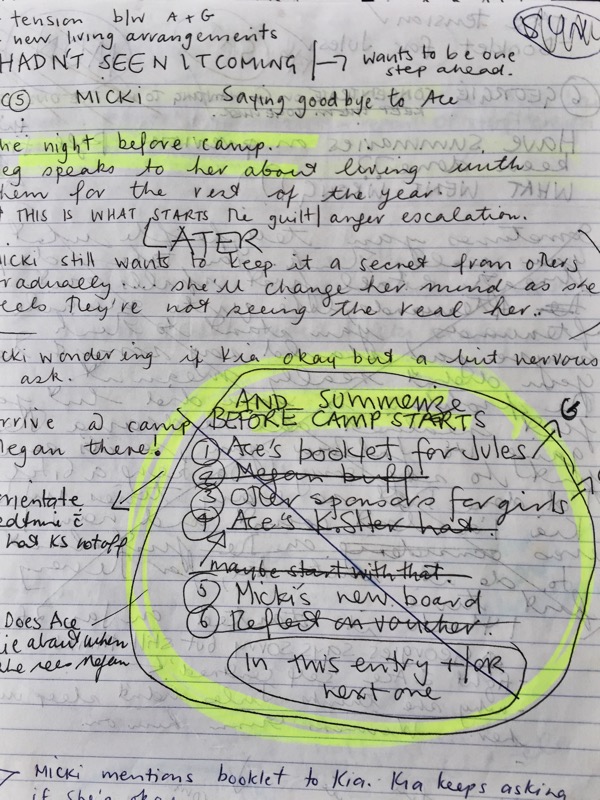 tension b/w A + G
new living arrangements
HADN'T SEEN IT COMING → wants to be one
step ahead.
C(5) MICKI Saying goodbye to Ace
he night before camp.
eg speaks to her about living with
hem for the rest of the year
THIS IS WHAT STARTS the guilt/anger escalation.
LATER
Micki still wants to keep it a secret from others
radually.... she'll change her mind as she
eels they're not seeing the real her..
cki wondering if Kia okay but a bit nervous
ask.
rrive @ camp
Megan there!
AND Summerise
BEFORE CAMP STARTS
① Ace's booklet for Jules
G
② Megan buff
③ Other sponsors for girls
④ Ace's K.Slter hat.
maybe start with that.
⑤ Micki's new board
⑥ Reflect on voucher.
In this entry +/or
next one
rientate
hat KS not off
Does Ace
ie about when
she sees Megan
Micki mentions booklet to Kia. Kia keeps asking
if she's okay